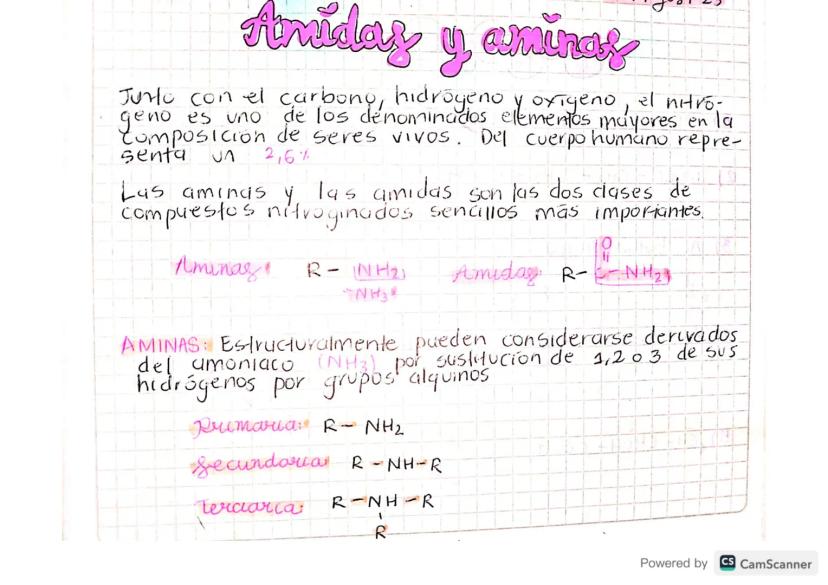 Amidas y aminas
Junto con el carbono, hidrógeno y oxígeno, el nitró-
geno es uno de los denominados elementos mayores en la
composición de seres vivos. Del cuerpo humano repre-
senta un 2,6%
Las aminas y las amidas son las dos clases de
compuestos nitroginados sencillos más importantes.
O
Aminas: R - NH2 Amidas R- C - NH2
"NH3"
AMINAS: Estructuralmente pueden considerarse derivados
del amoniaco (NH3) por sustitucion de 1,2 o 3 de sus
hidrógenos por grupos alquinos
Primaria: R - NH2
Secundaria R - NH - R
terciaria: R - NH - R
R
Powered by CS CamScanner